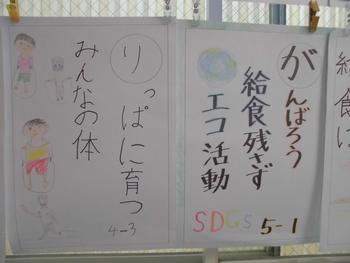 りっぱに育つ
みんなの体
4-3
がんばろう
給食残さず
エコ活動
SDGs
5-1
給食は